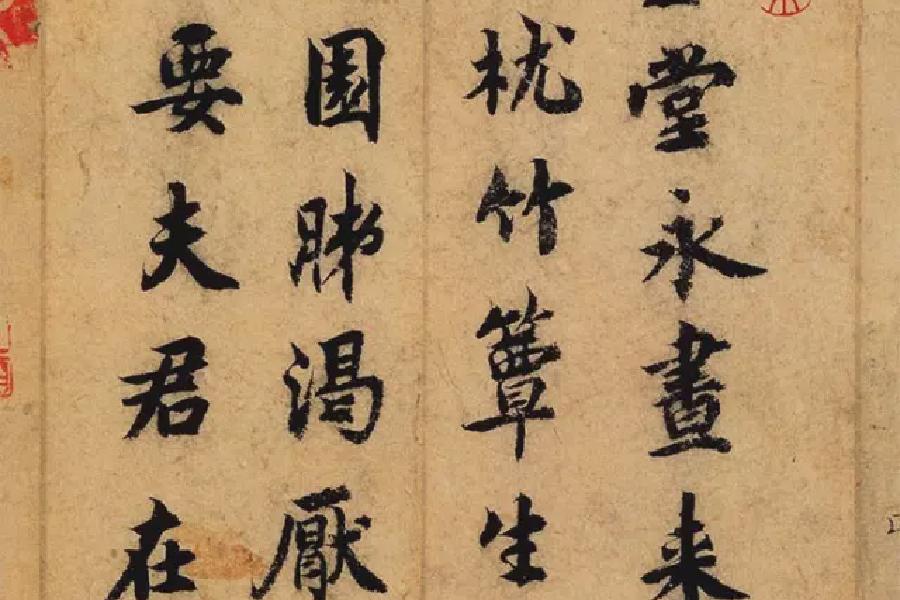 堂永晝来
枕竹簟生
園肺渴厭
要夫君在